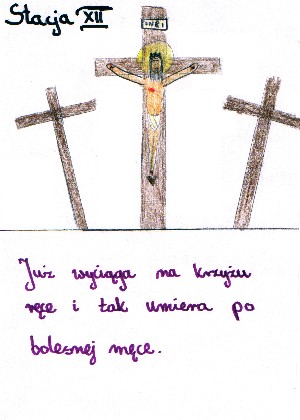 Stacja XII
INRI
Już wyciąga na krzyżu
ręce i tak umiera po
bolesnej męce.